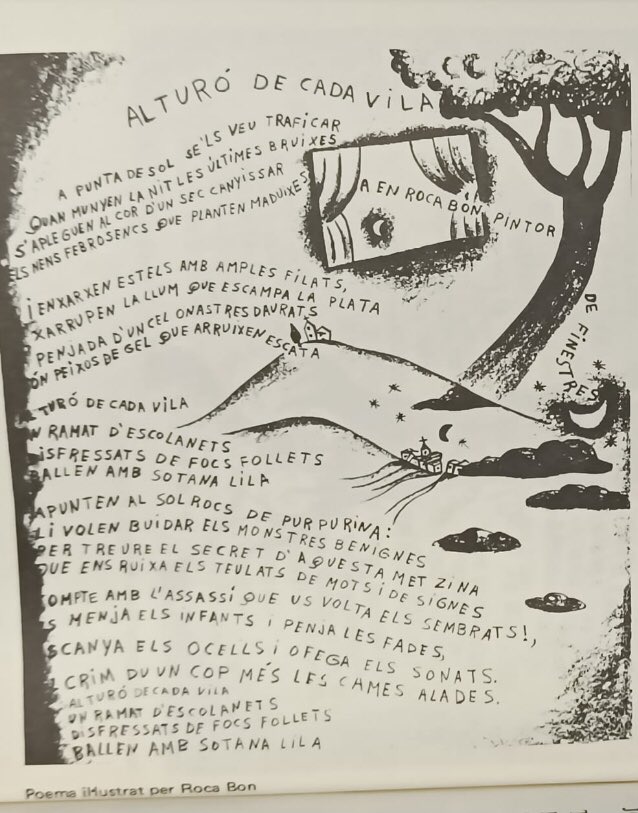 AL TURÓ DE CADA VILA
A PUNTA DE SOL SE'LS VEU TRAFICAR
QUAN MUNYEN LA NIT LES ÚLTIMES BRUIXES
S'APLEGUEN AL COR D'UN SEC CANYISSAR
ELS NENS FEBROSENCS QUE PLANTEN MADUIXES
A EN ROCA BON, PINTOR
DE FINESTRES
I ENXARXEN ESTELS AMB AMPLES FILATS,
XARRUPEN LA LLUM QUE ESCAMPA LA PLATA
PENJADA D'UN CEL ON ASTRES DAURATS
SÓN PEIXOS DE GEL QUE ARRUIXEN ESCATA
AL TURÓ DE CADA VILA
UN RAMAT D'ESCOLANETS
DISFRESSATS DE FOCS FOLLETS
BALLEN AMB SOTANA LILA
APUNTEN AL SOL ROCS DE PURPURINA:
LI VOLEN BUIDAR ELS MONSTRES BENIGNES
PER TREURE EL SECRET D'AQUESTA METZINA
QUE ENS RUIXA ELS TEULATS DE MOTS I DE SIGNES
COMPTE AMB L'ASSASSÍ QUE US VOLTA ELS SEMBRATS!,
ES MENJA ELS INFANTS I PENJA LES FADES,
ESCANYA ELS OCELLS I OFEGA ELS SONATS.
EL CRIM DU UN COP MÉS LES CAMES ALADES.
AL TURÓ DE CADA VILA
UN RAMAT D'ESCOLANETS
DISFRESSATS DE FOCS FOLLETS
BALLEN AMB SOTANA LILA
Poema il·lustrat per Roca Bon